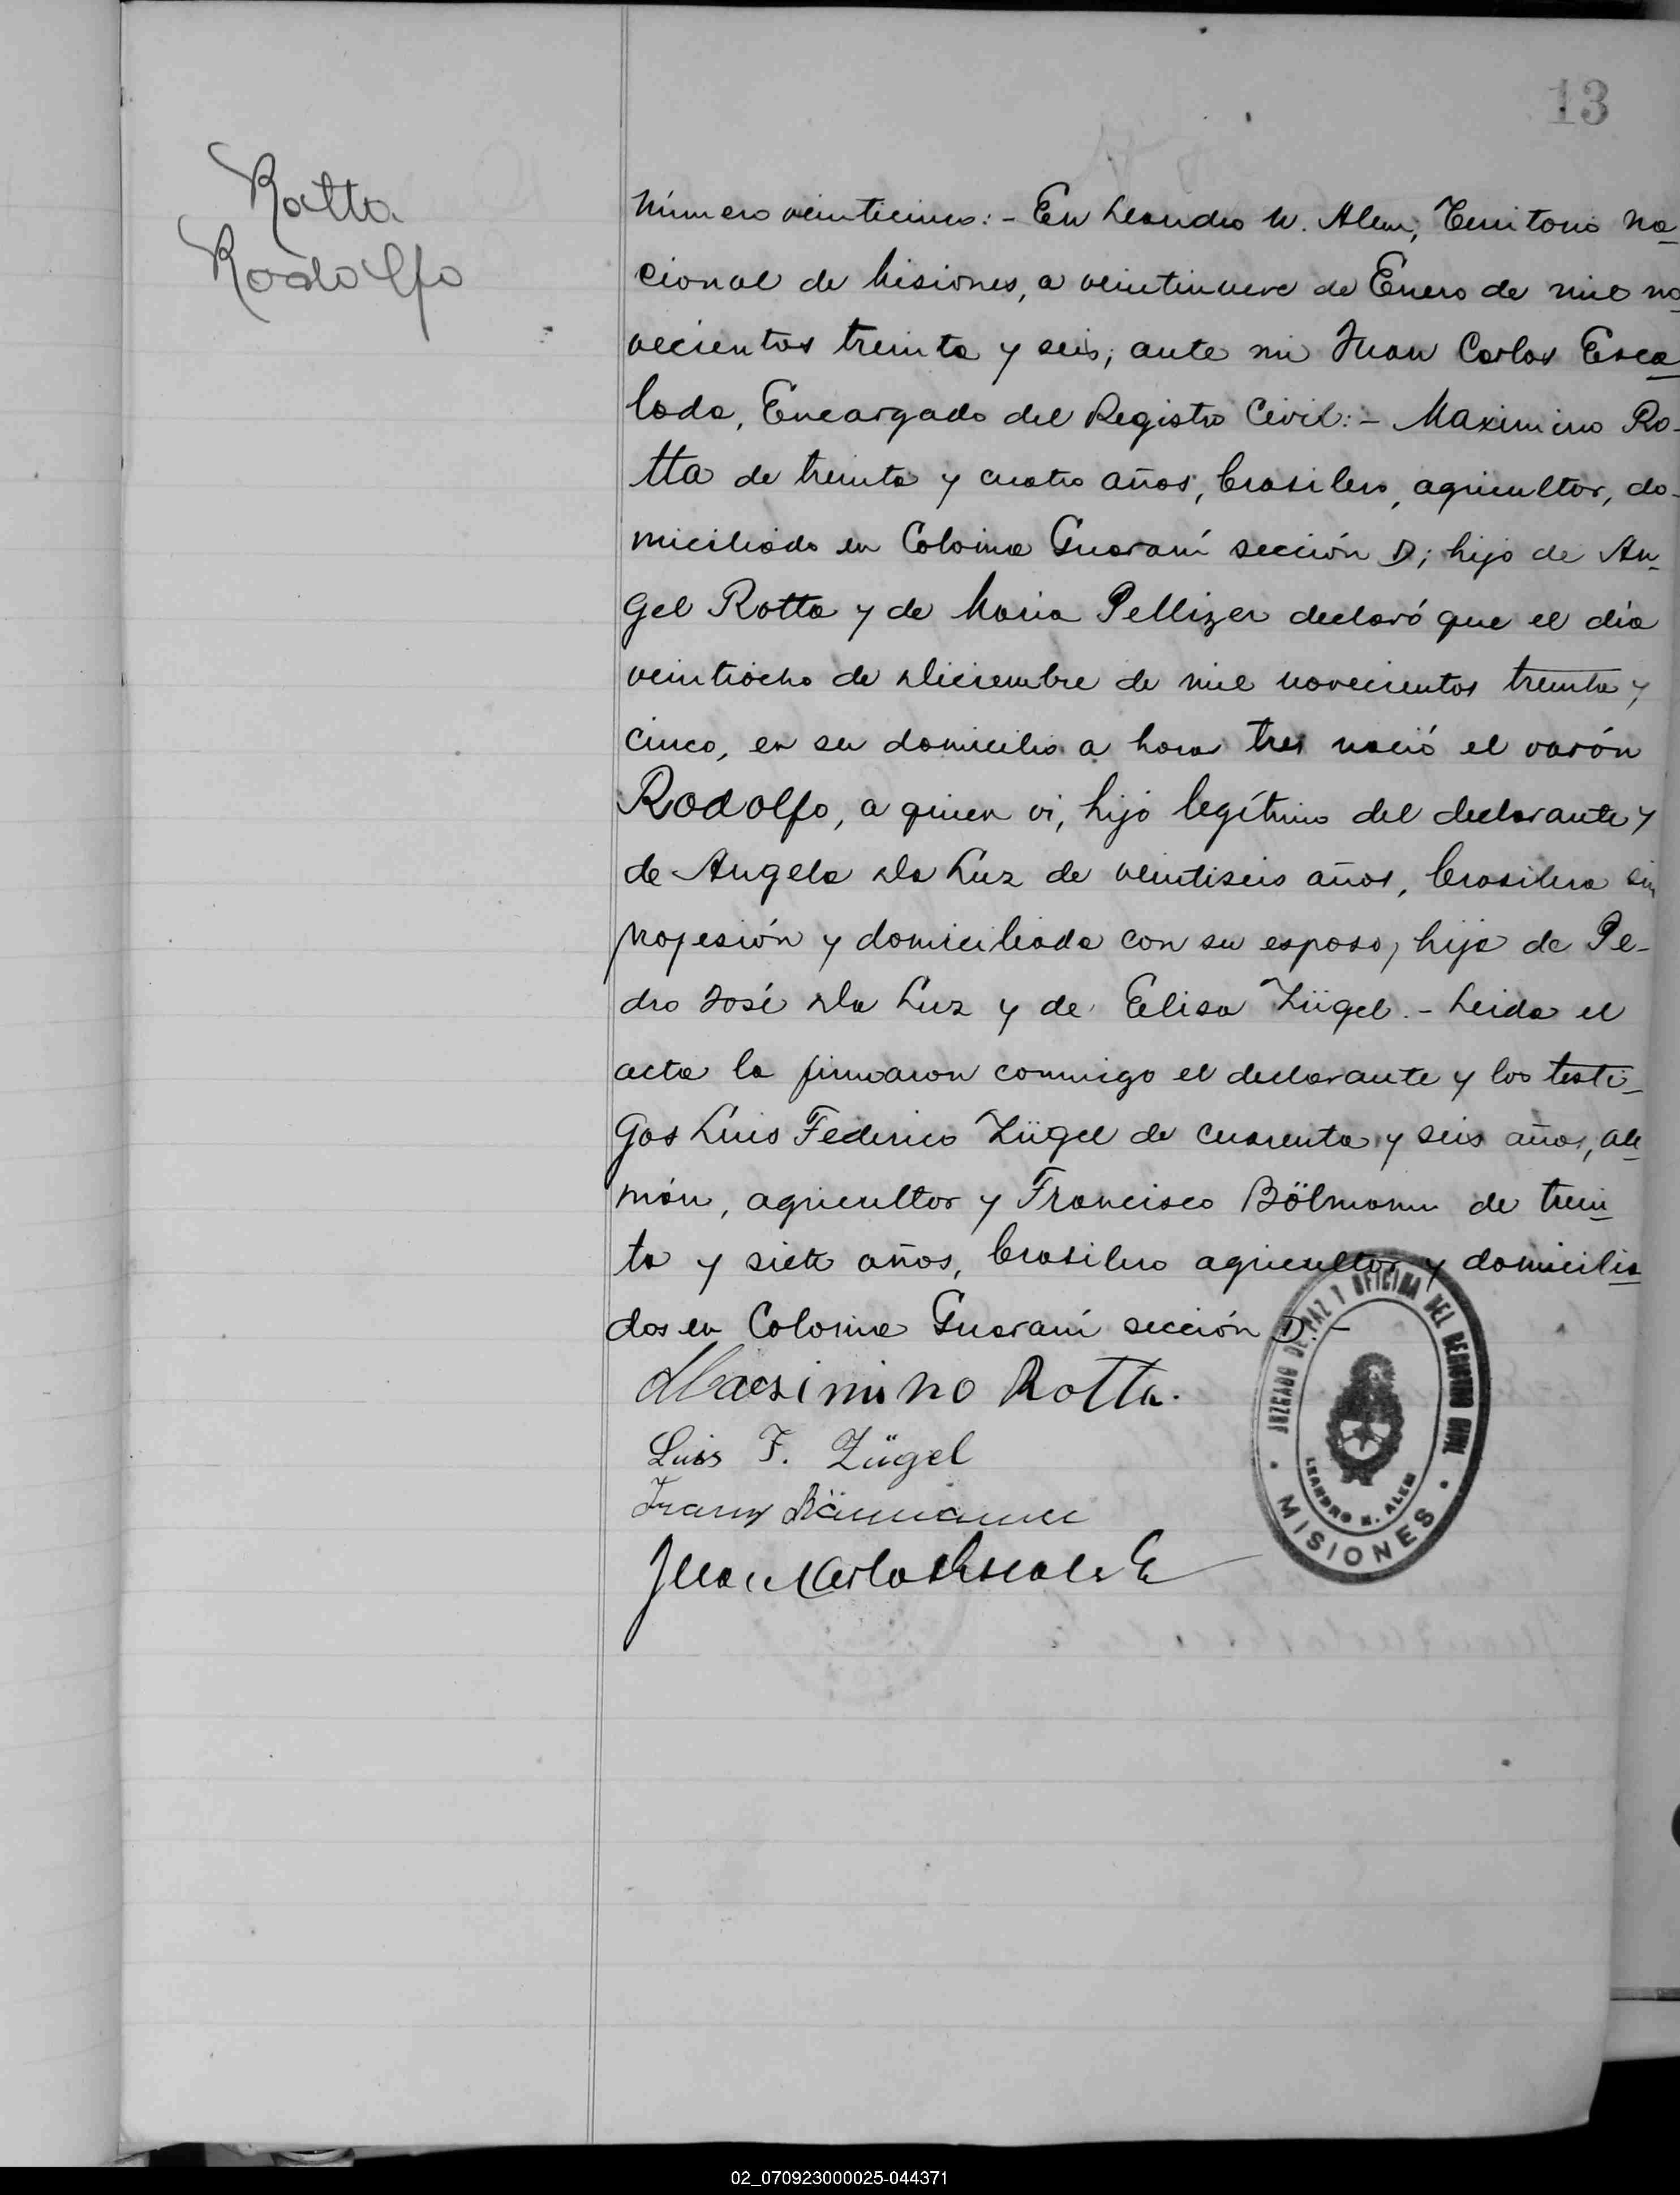 13
Rotta
Rodolfo
Número veinticinco:- En Leandro N. Alem, Territorio Na-
cional de Misiones, a veintinueve de Enero de mil no-
vecientos treinta y seis; ante mi Juan Carlos Esca-
lada, Encargado del Registro Civil:- Maximino Ro-
tta de treinta y cuatro años, brasilero, agricultor, do-
miciliado en Colonia Guaraní sección D; hijo de An-
gel Rotta y de Maria Pellizer declaró que el día
veintiocho de Diciembre de mil novecientos treinta y
cinco, en su domicilio a hora tres nació el varón
Rodolfo, a quien vi, hijo legítimo del declarante y
de Angela Da Luz de veintiseis años, brasilera sin
profesión y domiciliada con su esposo, hija de Pe-
dro José Da Luz y de Elisa Zügel.- Leida el
acta la firmaron conmigo el declarante y los testi-
gos Luis Federico Zügel de cuarenta y seis años, ale-
mán, agricultor y Francisco Bölmann de trein-
ta y siete años, brasilero agricultor y domicilia-
dos en Colonia Guaraní sección D.-
Maesimino Rotta.
Luis F. Zügel
Franz
Juan Carlos Escalada
JUZGADO DE PAZ Y OFICINA DEL REGISTRO CIVIL
LEANDRO N. ALEM
MISIONES
02_070923000025-044371